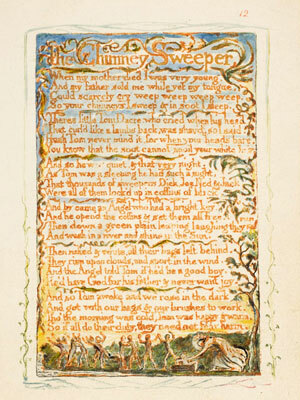 12
The Chimney Sweeper
When my mother died I was very young,
And my father sold me while yet my tongue,
Could scarcely cry weep weep weep weep,
So your chimneys I sweep & in soot I sleep.
Theres little Tom Dacre who cried when his head
That curl'd like a lambs back, was shav'd, so I said
Hush Tom never mind it, for when your head's bare,
You know that the soot cannot spoil your white hair
And so he was quiet, & that very night,
As Tom was a sleeping he had such a sight,
That thousands of sweepers Dick, Joe, Ned & Jack
Were all of them lock'd up in coffins of black,
And by came an Angel who had a bright key,
And he open'd the coffins & set them all free.
Then down a green plain leaping laughing they run
And wash in a river and shine in the Sun.
Then naked & white, all their bags left behind,
They rise upon clouds, and sport in the wind.
And the Angel told Tom if he'd be a good boy,
He'd have God for his father & never want joy.
And so Tom awoke and we rose in the dark
And got with our bags & our brushes to work.
Tho' the morning was cold, Tom was happy & warm,
So if all do their duty, they need not fear harm.